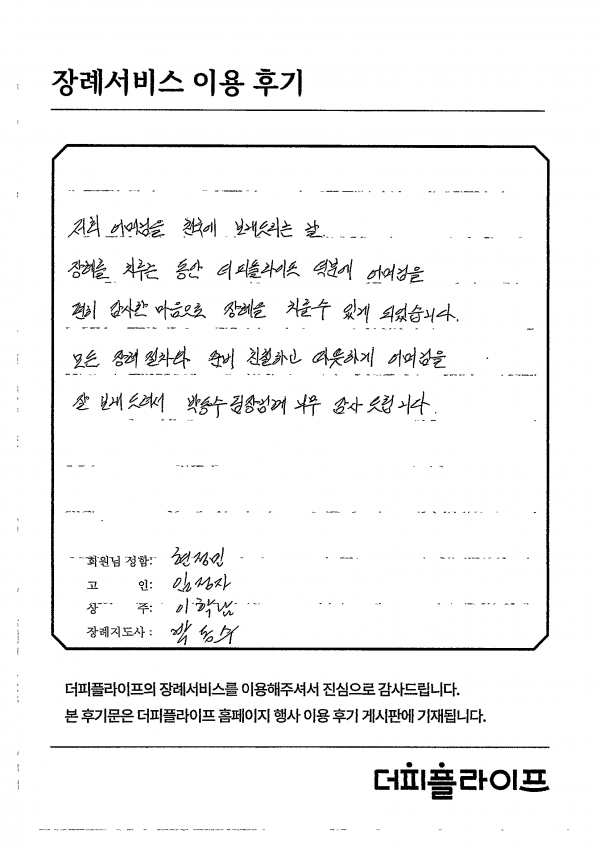 장례서비스 이용 후기
저희 어머님을 천국에 보내드리는 날
장례를 치루는 동안 더피플라이프 덕분에 어머님을
편히 감사한 마음으로 장례를 치룰수 있게 되었습니다.
모든 장례 절차와 준비 친절하고 따뜻하게 어머님을
잘 보내 드려서 박동수팀장님께 너무 감사 드립니다.
회원님 성함: 현정민
고 인: 임정자
상 주: 이학남
장례지도사: 박동수
더피플라이프의 장례서비스를 이용해주셔서 진심으로 감사드립니다.
본 후기문은 더피플라이프 홈페이지 행사 이용 후기 게시판에 기재됩니다.
더피플라이프